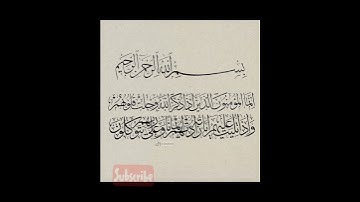 بِسْمِ ٱللَّٰهِ ٱلرَّحْمَٰنِ ٱلرَّحِيمِ
إِنَّمَا ٱلْمُؤْمِنُونَ ٱلَّذِينَ إِذَا ذُكِرَ ٱللَّهُ وَجِلَتْ قُلُوبُهُمْ
وَإِذَا تُلِيَتْ عَلَيْهِمْ ءَايَٰتُهُۥ زَادَتْهُمْ إِيمَٰنًا وَعَلَىٰ رَبِّهِمْ يَتَوَكَّلُونَ
Subscribe